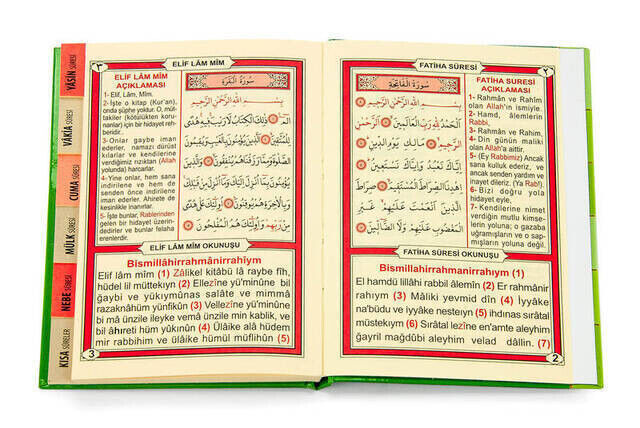 FATİHA SÛRESİ
٢
سُورَةُ الْفَاتِحَةِ
بِسْمِ اللهِ الرَّحْمٰنِ الرَّحِيمِ
اَلْحَمْدُ لِلّٰهِ رَبِّ الْعَالَمِينَ الرَّحْمٰنِ
الرَّحِيمِ مَالِكِ يَوْمِ الدِّينِ
اِيَّاكَ نَعْبُدُ وَاِيَّاكَ نَسْتَعِينُ
اِهْدِنَا الصِّرَاطَ الْمُسْتَقِيمَ صِرَاطَ
الَّذِينَ اَنْعَمْتَ عَلَيْهِمْ غَيْرِ
الْمَغْضُوبِ عَلَيْهِمْ وَلَا الضَّالِّينَ
FATİHA SURESİ
AÇIKLAMASI
1- Rahmân ve Rahîm
olan Allah'ın ismiyle.
2- Hamd, âlemlerin
Rabbi,
3- Rahmân ve Rahim,
4- Din günün maliki
olan Allah'a aittir.
5- (Ey Rabbimiz) Ancak
sana kulluk ederiz,
ancak senden yardım ve
inayet dileriz. (Ya Rab!).
6- Bizi doğru yola
hidayet eyle,
7- Kendilerine nimet
verdiğin mutlu kimse-
lerin yoluna; o gazaba
uğramışların ve o sap-
mışların yoluna değil.
FATİHA SÛRESİ OKUNUŞU
Bismillâhirrahmanirrahıym (1)
El hamdü lillâhi rabbil âlemîn (2) Er rahmânir
rahıym (3) Mâliki yevmid dîn (4) İyyâke
na'büdü ve iyyâke nesteıyn (5) ihdınas sırâtal
müstekıym (6) Sırâtal lezîne en'amte aleyhim
ğayril mağdûbi aleyhim velad dâllîn. (7)
2
٣
ELİF LÂM MÎM
ELİF LÂM MÎM
AÇIKLAMASI
1- Elif, Lâm, Mîm.
2- İşte o kitap (Kur'an),
onda şüphe yoktur. O, müt-
takiler (kötülükten korun-
anlar) için bir hidayet reh-
beridir.
3- Onlar gaybe iman
ederler, namazı dürüst
kılarlar ve kendilerine
verdiğimiz rızıktan (Allah
yolunda) harcarlar.
4- Yine onlar, hem sana
indirilene ve hem de
senden önce indirilene
iman ederler. Ahirete de
kesinlikle inanırlar.
5- İşte bunlar, Rablerinden
gelen bir hidayet üzerin-
dedirler ve bunlar felaha
erenlerdir.
سُورَةُ الْبَقَرَةِ
بِسْمِ اللهِ الرَّحْمٰنِ الرَّحِيمِ
الٓمٓ ذٰلِكَ الْكِتَابُ لَا رَيْبَ فِيهِ هُدًى
لِلْمُتَّقِينَ اَلَّذِينَ يُؤْمِنُونَ بِالْغَيْبِ وَيُقِيمُونَ
الصَّلٰوةَ وَمِمَّا رَزَقْنَاهُمْ يُنْفِقُونَ وَالَّذِينَ
يُؤْمِنُونَ بِمَا اُنْزِلَ اِلَيْكَ وَمَا اُنْزِلَ مِنْ قَبْلِكَ
وَبِالْاٰخِرَةِ هُمْ يُوقِنُونَ اُولٰئِكَ عَلٰى هُدًى
مِنْ رَبِّهِمْ وَاُولٰئِكَ هُمُ الْمُفْلِحُونَ
ELİF LÂM MÎM OKUNUŞU
Bismillâhirrahmanirrahiym
Elif lâm mîm (1) Zâlikel kitâbü lâ raybe fîh,
hüdel lil müttekıyn (2) Ellezîne yü'minûne bil
ğaybi ve yükıymûnas salâte ve mimmâ
razaknâhüm yünfikûn (3) Vellezîne yü'minûne bi
mâ ünzile ileyke vemâ ünzile min kablik, ve
bil âhıreti hüm yûkınûn (4) Ülâike alâ hüdem
mir rabbihim ve ülâike hümül müflihûn (5)
3
YÂSİN SÛRESİ
VÂKIA SÛRESİ
CUMA SÛRESİ
MÜLK SÛRESİ
NEBE SÛRESİ
KISA SÛRELER